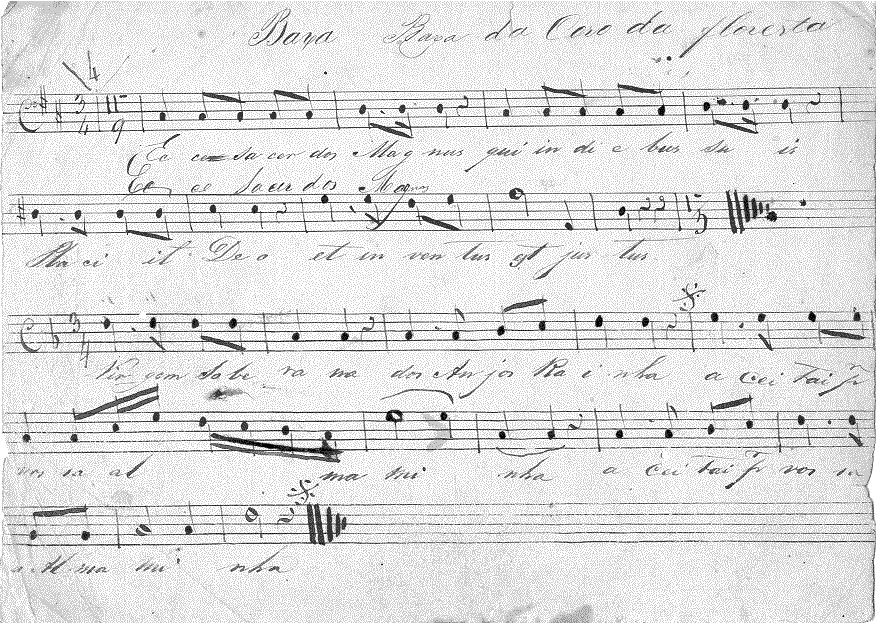 Baxa Baxa da Coro da floresta
4
3 4 9
Ec ce sa cer dos Mag nus qui in di e bus su is
Ec ce Sacerdos Magnus
Pla ci it Deo et in ven tus est jus tus
3 4
Vir gem So be ra na dos An jos Ra i nha a cei tai Pr
vos sa al ma mi nha a cei tai Pr vos sa
a Al ma mi nha